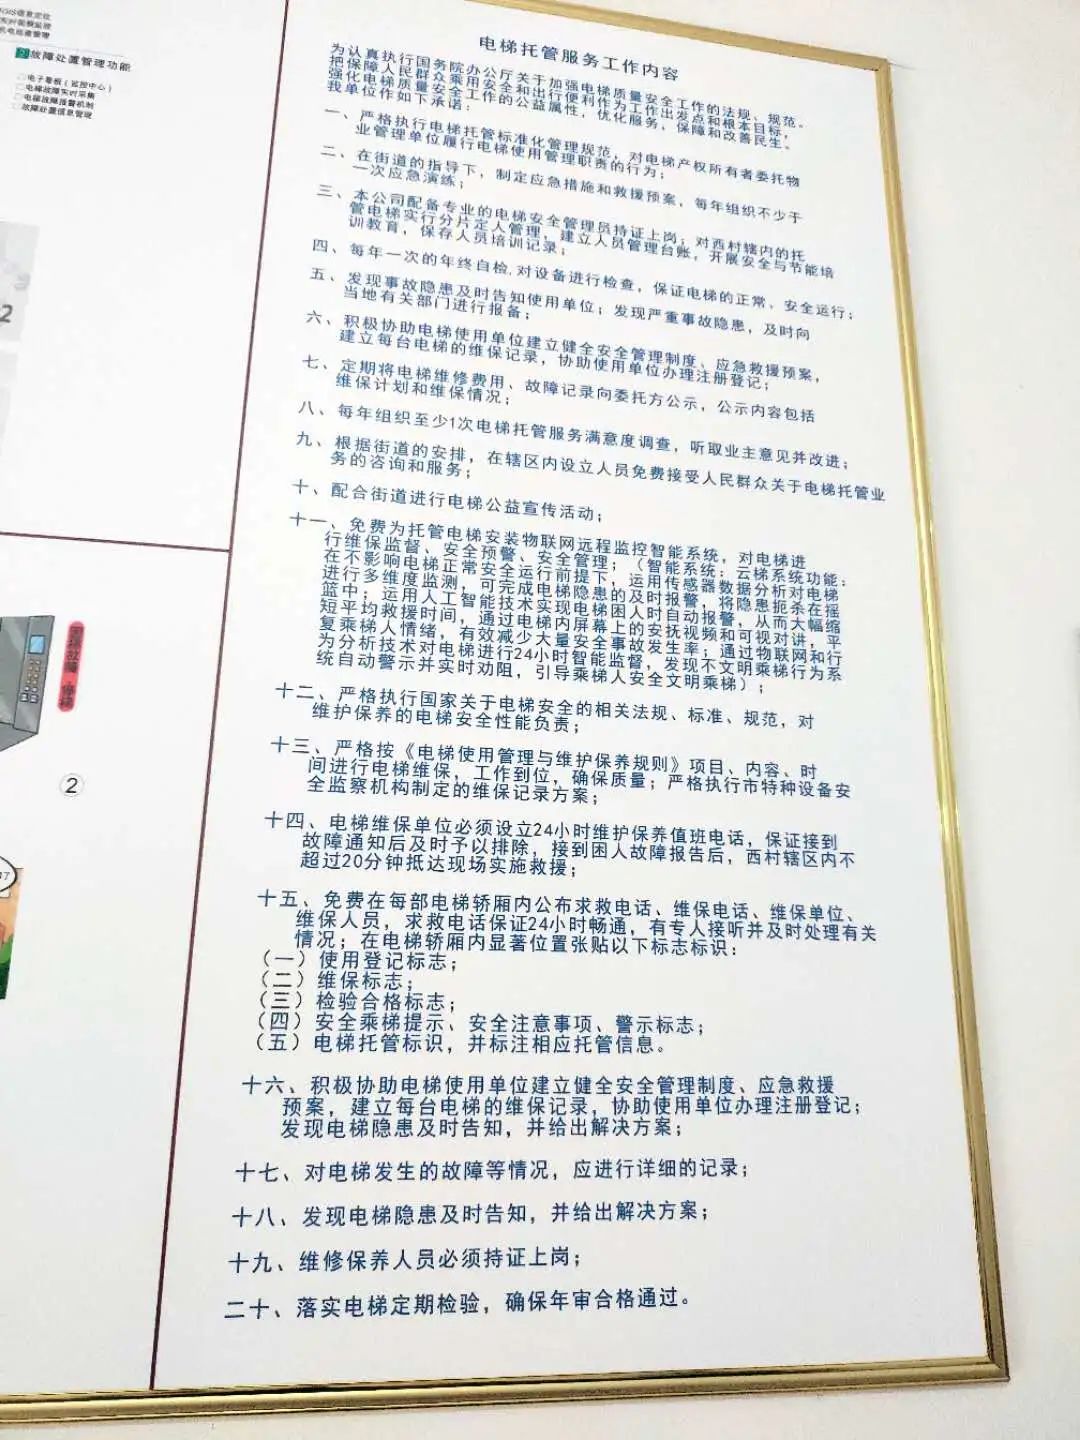 故障处置管理功能
电子看板（监控中心）
电梯故障实时采集
电梯故障报警机制
故障处置信息管理
2
②
电梯托管服务工作内容
为认真执行国务院办公厅关于加强电梯质量安全工作的法规、规范。
把保障人民群众乘用安全和出行便利作为工作出发点和根本目标，
强化电梯质量安全工作的公益属性，优化服务，保障和改善民生。
我单位作如下承诺：
一、严格执行电梯托管标准化管理规范，对电梯产权所有者委托物
业管理单位履行电梯使用管理职责的行为；
二、在街道的指导下，制定应急措施和救援预案，每年组织不少于
一次应急演练；
三、本公司配备专业的电梯安全管理员持证上岗；对西村辖内的托
管电梯实行分片定人管理，建立人员管理台账，开展安全与节能培
训教育，保存人员培训记录；
四、每年一次的年终自检，对设备进行检查，保证电梯的正常、安全运行；
五、发现事故隐患及时告知使用单位；发现严重事故隐患，及时向
当地有关部门进行报备；
六、积极协助电梯使用单位建立健全安全管理制度、应急救援预案，
建立每台电梯的维保记录，协助使用单位办理注册登记；
七、定期将电梯维修费用、故障记录向委托方公示，公示内容包括
维保计划和维保情况；
八、每年组织至少1次电梯托管服务满意度调查，听取业主意见并改进；
九、根据街道的安排，在辖区内设立人员免费接受人民群众关于电梯托管业
务的咨询和服务；
十、配合街道进行电梯公益宣传活动；
十一、免费为托管电梯安装物联网远程监控智能系统，对电梯进
行维保监督、安全预警、安全管理；（智能系统：云梯系统功能：
在不影响电梯正常安全运行前提下，运用传感器数据分析对电梯
进行多维度监测，可完成电梯隐患的及时报警，将隐患扼杀在摇
篮中；运用人工智能技术实现电梯困人时自动报警，从而大幅缩
短平均救援时间，通过电梯内屏幕上的安抚视频和可视对讲，平
复乘梯人情绪，有效减少大量安全事故发生率；通过物联网和行
为分析技术对电梯进行24小时智能监督，发现不文明乘梯行为系
统自动警示并实时劝阻，引导乘梯人安全文明乘梯）；
十二、严格执行国家关于电梯安全的相关法规、标准、规范，对
维护保养的电梯安全性能负责；
十三、严格按《电梯使用管理与维护保养规则》项目、内容、时
间进行电梯维保，工作到位，确保质量；严格执行市特种设备安
全监察机构制定的维保记录方案；
十四、电梯维保单位必须设立24小时维护保养值班电话，保证接到
故障通知后及时予以排除，接到困人故障报告后，西村辖区内不
超过20分钟抵达现场实施救援；
十五、免费在每部电梯轿厢内公布求救电话、维保电话、维保单位、
维保人员，求救电话保证24小时畅通，有专人接听并及时处理有关
情况；在电梯轿厢内显著位置张贴以下标志标识：
（一）使用登记标志；
（二）维保标志；
（三）检验合格标志；
（四）安全乘梯提示、安全注意事项、警示标志；
（五）电梯托管标识，并标注相应托管信息。
十六、积极协助电梯使用单位建立健全安全管理制度、应急救援
预案，建立每台电梯的维保记录，协助使用单位办理注册登记；
发现电梯隐患及时告知，并给出解决方案；
十七、对电梯发生的故障等情况，应进行详细的记录；
十八、发现电梯隐患及时告知，并给出解决方案；
十九、维修保养人员必须持证上岗；
二十、落实电梯定期检验，确保年审合格通过。